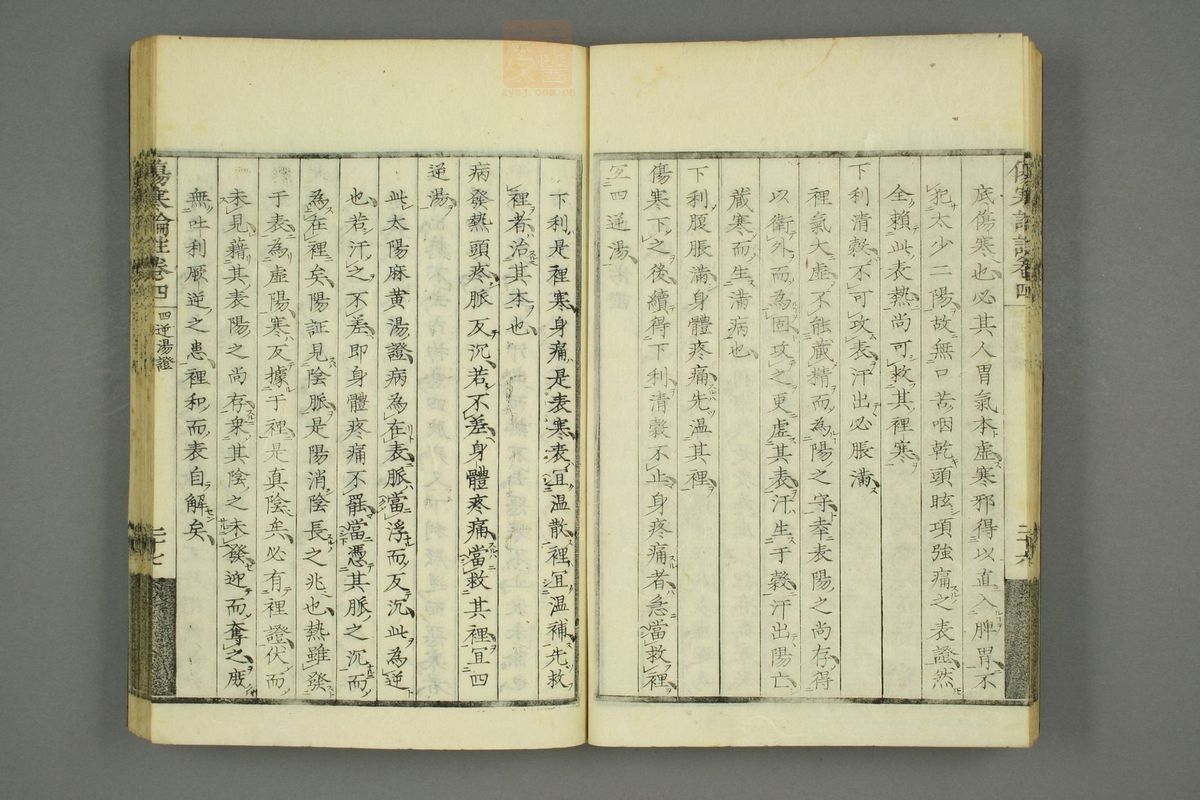 傷寒論註卷四
二十六
底傷寒也必其人胃氣本虛寒邪得以直入脾胃不
犯太少二陽故無口苦咽乾頭眩項強痛之表證然
全賴此表熱尚可救其裡寒
下利清穀不可攻表汗出必脹滿
裡氣大虛不能藏精而為陽之守幸表陽之尚存得
以衛外而為固攻之更虛其表汗生于穀汗出陽亡
藏寒而生滿病也
下利腹脹滿身體疼痛先溫其裡
傷寒下之後續得下利清穀不止身疼痛者急當救裡
宜四逆湯
下利是裡寒身痛是表寒表宜溫散裡宜溫補先救
裡者治其本也
病發熱頭疼脈反沉若不差身體疼痛當救其裡宜四
逆湯
此太陽麻黃湯證病為在表脈當浮而反沉此為逆
也若汗之不差即身體疼痛不罷當憑其脈之沉而
為在裡矣陽証見陰脈是陽消陰長之兆也熱雖發
于表為虛陽寒反據于裡是真陰矣必有裡證伏而
未見藉其表陽之尚存乘其陰之未發迎而奪之庶
無吐利厥逆之患裡和而表自解矣
傷寒論註卷四
四逆湯證
二十七
zysj.com.cn